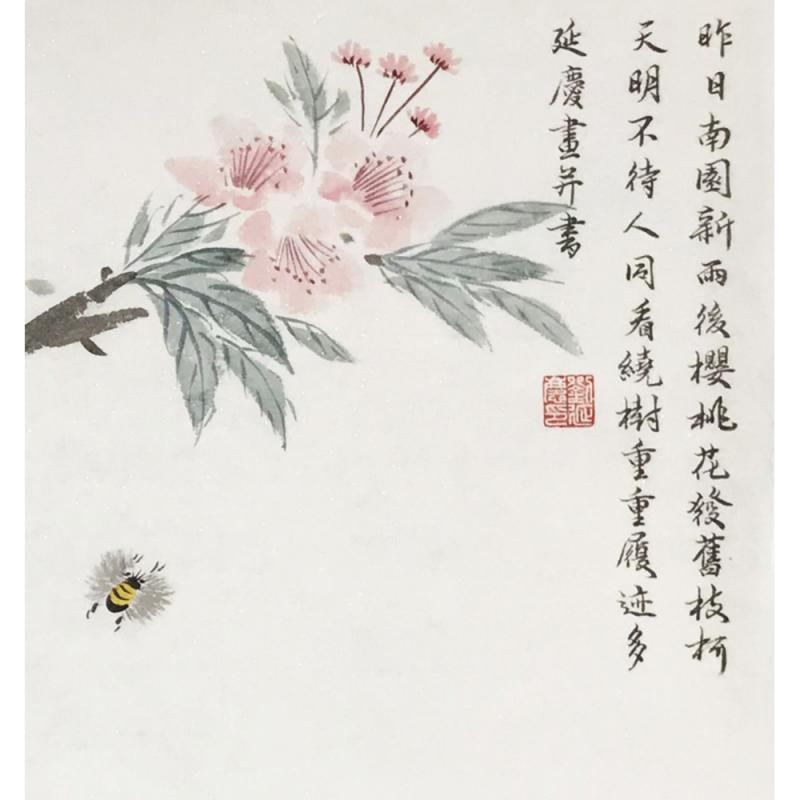 昨日南園新雨後櫻桃花發舊枝柯
天明不待人同看繞樹重重履迹多
延慶畫并書
劉延慶印